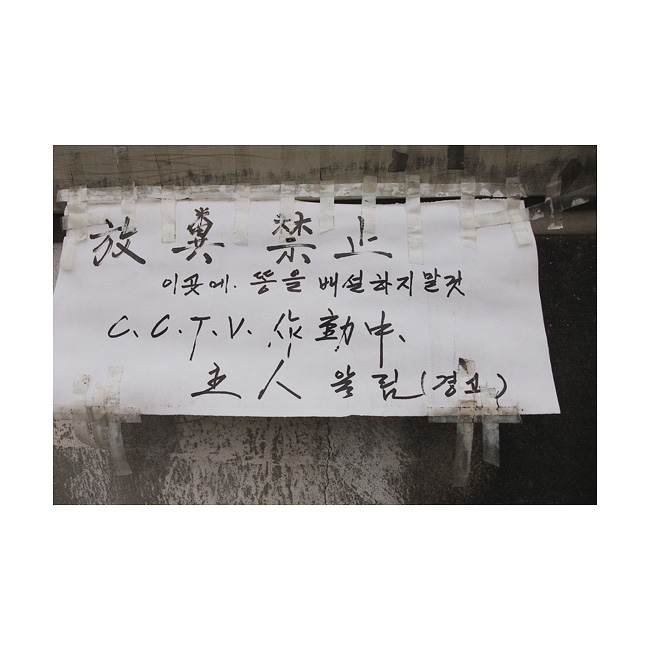 放糞禁止
이곳에. 똥을 배설하지말것
C.C.T.V. 作動中.
主人 알림(경고)